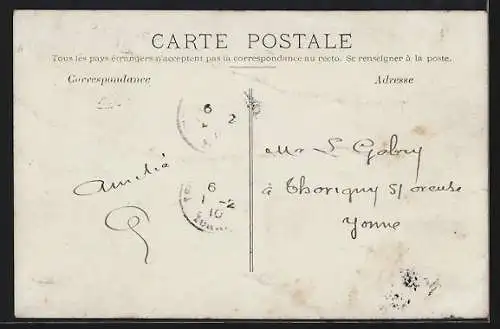 CARTE POSTALE
Tous les pays étrangers n'acceptent pas la correspondance au recto. Se renseigner à la poste.
Correspondance
Adresse
6
2
Amitié
6
1-2
10
YONNE
Mr L Gabry
à Thorigny s/ oreuse
Yonne